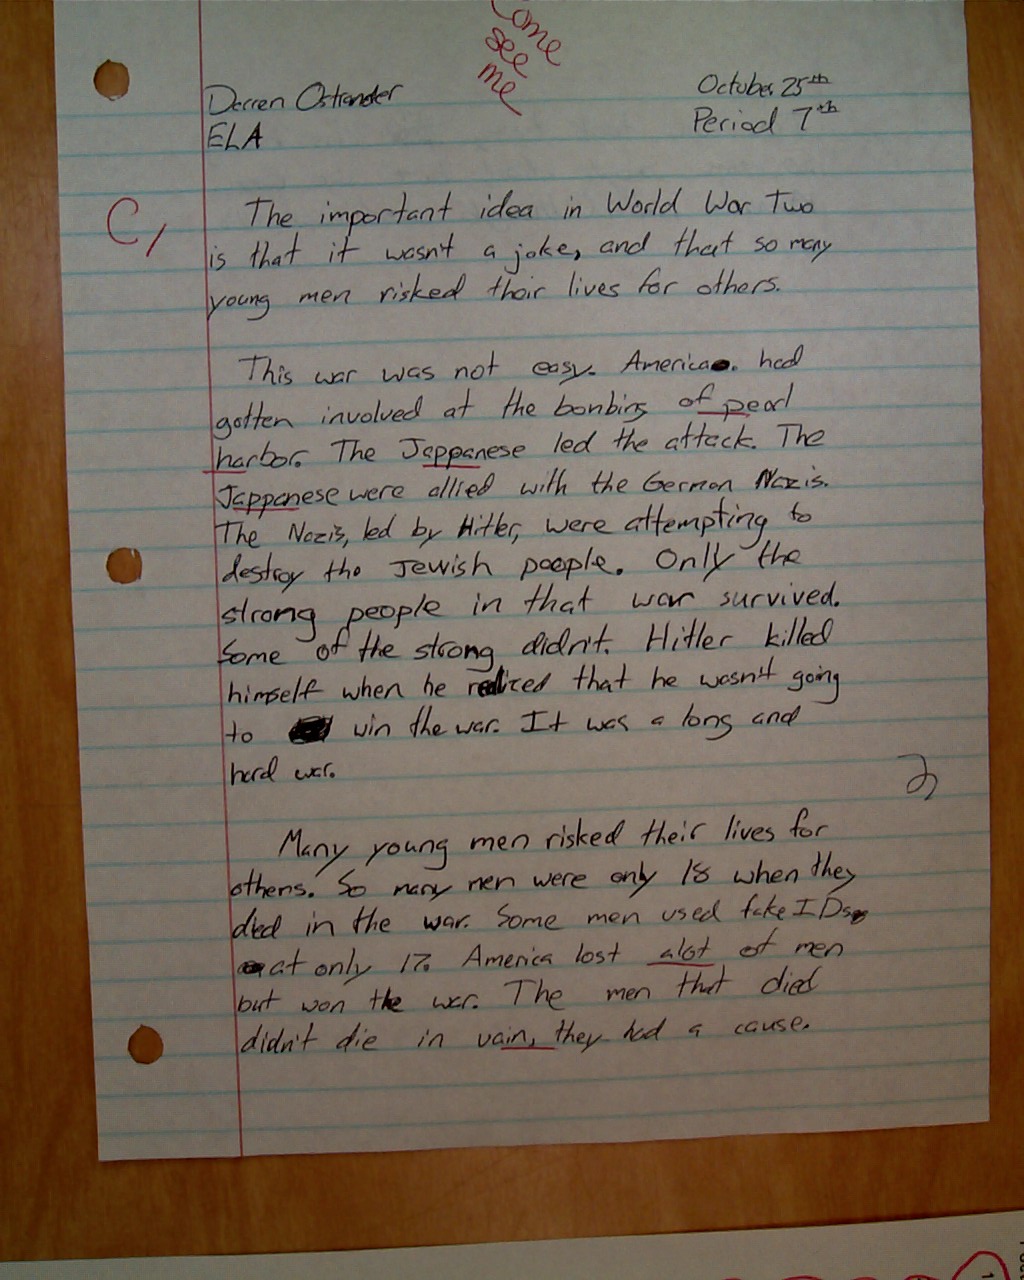 Come
see
me
Derren Ostrander
October 25th
ELA
Period 7th
C,
The important idea in World War Two
is that it wasn't a joke, and that so many
young men risked their lives for others.
This war was not easy. America. had
gotten involved at the bonbing of pearl
harbor. The Jappanese led the attack. The
Jappanese were allied with the German Nazis.
The Nazis, led by Hitler, were attempting to
destroy the Jewish people. Only the
strong people in that war survived.
Some of the strong didn't. Hitler killed
himself when he realized that he wasn't going
to win the war. It was a long and
hard war.
Many young men risked their lives for
others. So many men were only 18 when they
died in the war. Some men used fake IDs
at only 17. America lost alot of men
but won the war. The men that died
didn't die in vain, they had a cause.